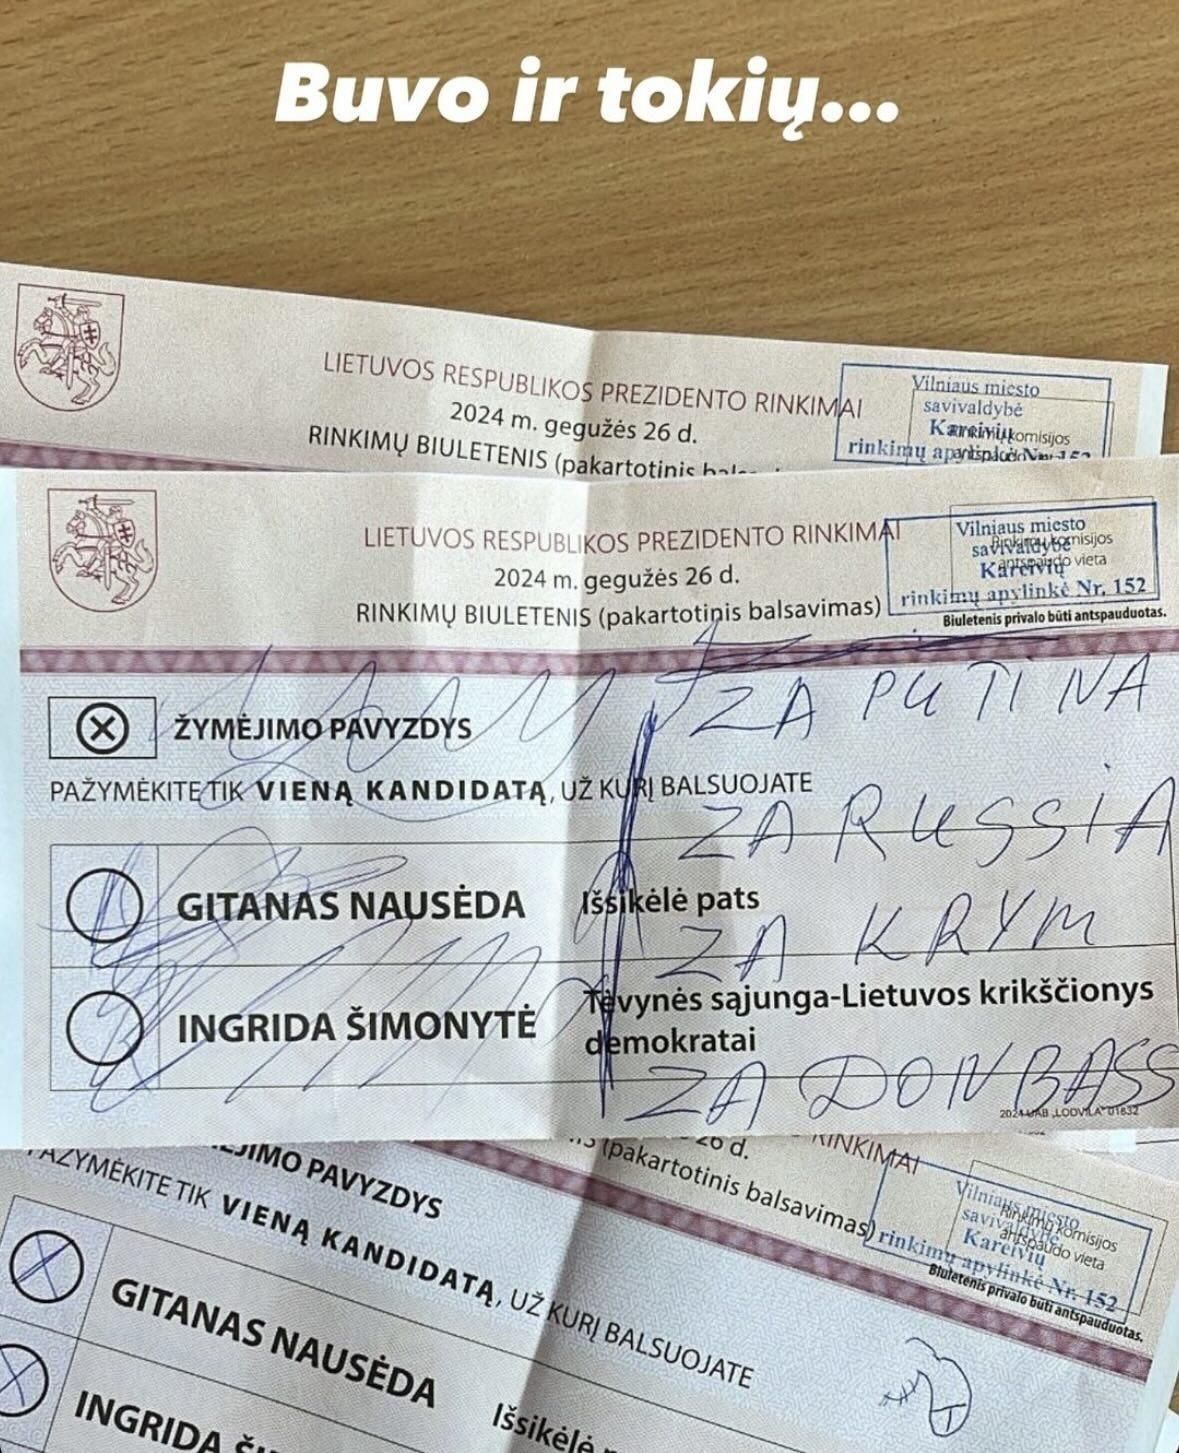 Buvo ir tokių...
LIETUVOS RESPUBLIKOS PREZIDENTO RINKIMAI
2024 m. gegužės 26 d.
RINKIMŲ BIULETENIS (pakartotinis
Vilniaus miesto
savivaldybė
Kareivių
komisijos
rinkimų
LIETUVOS RESPUBLIKOS PREZIDENTO RINKIMAI
2024 m. gegužės 26 d.
RINKIMŲ BIULETENIS (pakartotinis balsavimas)
Vilniaus miesto
savivaldybė
Kareivių
rinkimų apylinkė Nr. 152
Rinkimų komisijos
antspaudo vieta
Biuletenis privalo būti antspauduotas.
ŽYMĖJIMO PAVYZDYS
PAŽYMĖKITE TIK VIENĄ KANDIDATĄ, UŽ KURĮ BALSUOJATE
GITANAS NAUSĖDA
Išsikėlė pats
INGRIDA ŠIMONYTĖ
Tėvynės sąjunga-Lietuvos krikščionys
demokratai
ZA PUTINA
ZA RUSSIA
ZA KRYM
ZA DONBASS
2024 UAB „LODVILA" 01632
26 d.
RINKIMAI
(pakartotinis balsavimas)
Vilniaus miesto
savivaldybė
Kareivių
rinkimų apylinkė Nr. 152
Rinkimų komisijos
antspaudo vieta
Biuletenis privalo būti antspauduotas.
PAVYZDYS
PAŽYMĖKITE TIK VIENĄ KANDIDATĄ, UŽ KURĮ BALSUOJATE
GITANAS NAUSĖDA
Išsikėlė
INGRIDA